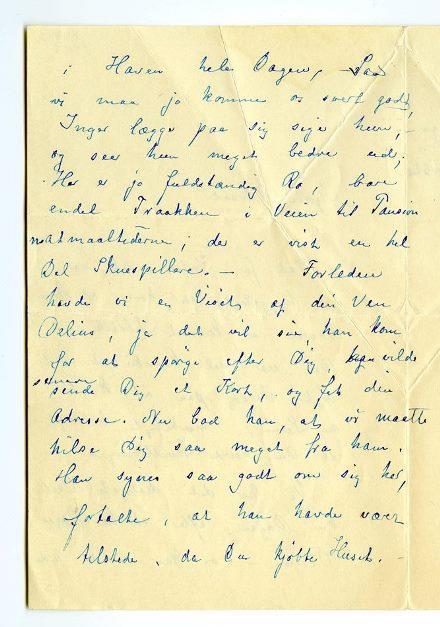 i Haven hele Dagen, Saa
vi maa jo komme os svært godt,
Inger lægge paa sig siger hun, –
og seer hun meget bedre ud;
Her er jo fuldstændig Ro, bare
endel Traakken i Veien til Pansion
matmaaltiderne; der er vist en hel
Del Skuespillere. – Forleden
havde vi en Visit af din Ven
Delius, ja det vil sie, han kom
for at spørge efter Dig, han vilde
senere
sende Dig et Kort, og fik din
Adresse. Nu bad han, at vi maatte
hilse Dig saa meget fra ham.
Han synes saa godt om sig her,
fortalte, at han havde været
tilstede, da Du kjøbte Huset. –